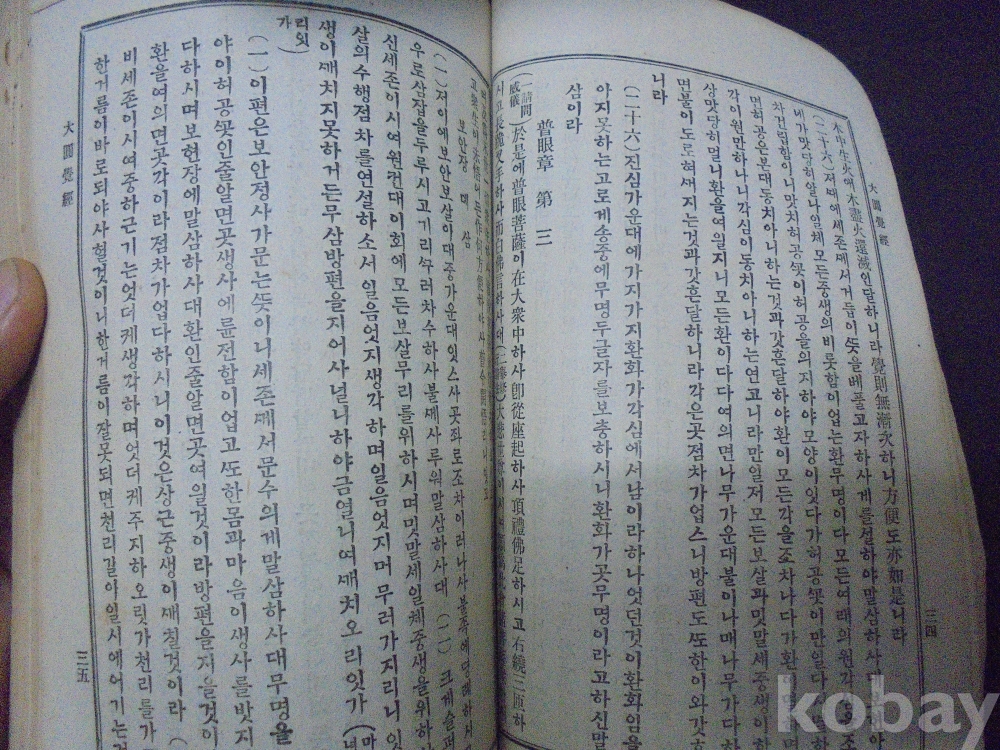 大圓覺經
三四
木中生火에木盡火還滅인달하니라覺則無漸次하니方便도亦如是니라
(二十六)저때에세존께서거듭이뜻을베풀고자하사게를설하야말삼하사대
네가맛당히알나일체모든중생의비롯함이업는환무명이다모든여래의원각
차건립함이니맛치허공꼿이허공을의지하야모양이잇다가허공꼿이만일다
면허공은본대동치아니하는것과갓흔달하야환이모든각을조차나다가환이
각이원만하나니각심이동치아니하는연고니라만일저모든보살과밋말세중생이
상맛당히멀니환을여일지니모든환이다다여의면나무가운대불이나매나무가다하
면불이도로혀새지는것과갓흔달하니라각은곳점차가업스니방편도또한이와갓
니라
(二十六)진심가운대에가지가지환화가각심에서남이라하나엇던것이환화임을
아지못하는고로게송중에무명두글자를보충하시니환화가곳무명이라고하신말
삼이라
普眼章 第三
(一請問
威儀)於是에普眼菩薩이在大衆中하사卽從座起하사頂禮佛足하시고右繞三匝하
시고長跪叉手하사而白佛言하사대
보안장 뎨삼
(一)저이에보안보살이대중가운대잇스사곳좌로조차이러나사불족에뎡례하시고
우로삼잡을두루시고기리꾸러차수하사불께사루워말삼하사대 (二) 크게슬
신세존이시여원컨대이회에모든보살무리를위하시며밋말세일체중생을위하
살의수행점차를연설하소서일음엇지생각하며일음엇지머무러가지리니잇
생이깨치지못하거든무삼방편을지어사널니하야금열니여깨치오리잇가
리잇
가)
(一)이편은보안정사가문는뜻이니세존께서문수의게말삼하사대무명을
야이허공꼿인줄알면곳생사에륜전함이업고또한몸과마음이생사를밧지
다하시며보현장에말삼하사대환인줄알면곳여일것이라방편을지을것이
환을여의면곳각이라점차가업다하시니이것은상근중생이깨칠것이라
비세존이시여중하근기는엇더케생각하며엇더케주지하오릿가천리를가
한거름이바로되야사헐것이니한거름이잘못되면천리길아일시에어기는
大圓覺經
三五
kobay